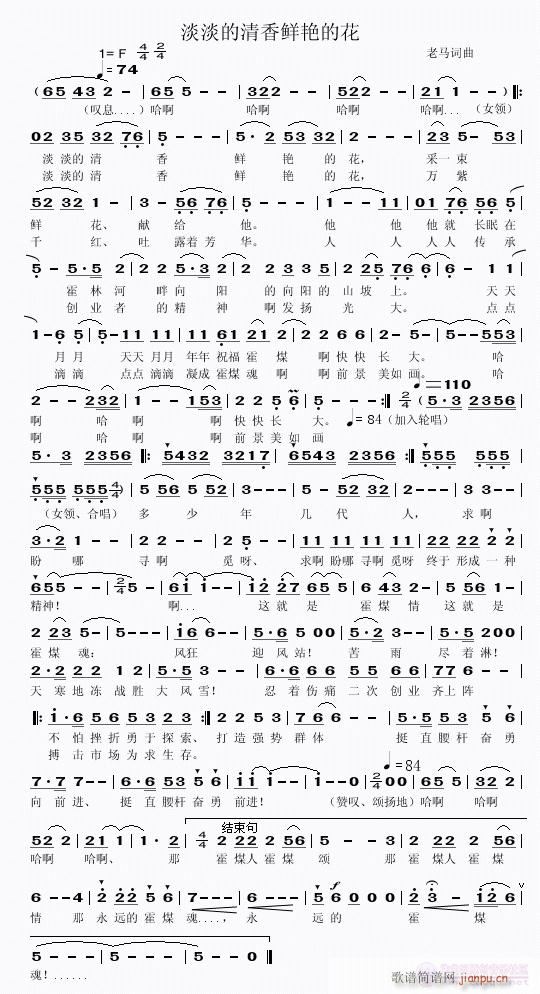 淡淡的清香鲜艳的花
1=F 4/4 2/4 老马词曲
♩=74
(65 43 2 - | 65 5 - - | 322 2 - - | 522 2 - - | 221 2 - - ) ‖:
(叹息....)哈啊 哈啊 哈啊 哈啊... (女领)
02 35 32 76 | 5 - - - | 5· 2 53 32 | 2 - - - | 23 5 - 53
淡 淡的 清 香 鲜 艳 的 花, 采一束
淡 淡的 清 香 鲜 艳 的 花, 万 紫
52 32 1 - | 3 - 56 76 | 5 - - - | 1 - - 11 | 01 76 56 5
鲜 花、 献 给 他。 他 他 他就 长眠在
千 红、 吐 露着芳 华。 人 人 人人 传 承
5 - 5·5 2 | 2 22 5·3 2 | 2 - - 2 | 22 5 76 6 | 6 - 1 1
霍林河 畔向 阳 的向阳的 山坡上。 天天
创业者 的精 神 啊发扬 光大。 点点
1-6 5 | 5-11 11 | 11 61 21 2 | 2 2 6 6 | 2 - 5 - | 5--553
月月 天天月月 年年祝福霍 煤 啊快快 长大。 哈
滴滴 点点滴滴 凝成霍煤魂 啊 啊前景 美如画。 哈
2 - - 232 | 1 - - 153 | 2 2 5 6 | 5 - - - :‖ 2/4 (5·3 2356 ♩=110
啊 哈 啊 啊快快长 大。 ♩=84(加入轮唱)
啊 哈 啊 啊前景美如 画
5·3 2356 ‖: 5432 3217 | 6543 2356 :‖ 555 555
555 555 4/4) | 5 56 5 52 | 2 - - - | 3 5 2 1 | 2 - - - | 5 - 56
(女领、合唱) 多 少 年 几 代 人, 求啊
3·2 2 - | 5 - 56 | 2·1 1 - | 11 11 11 11 | 22 22 2 2
盼 哪 寻啊 觅呀、 求啊盼哪寻啊觅呀 终于形成一种
655 - - | 2/4 5 - | 61 1 - | 122 17 65 | 6 43 2 - | 5 55 6 1-
精神! 啊... 这就是 霍煤情 这就是
2 23 5 - | 5--- | 16 6 - | 5·6 5 00 | 5·2 3 - | 5·5 200
霍煤魂: 风狂 迎风站! 苦雨 尽着淋!
2·2 22 1 2 | 5·5 5 1 - | 2·2 22 6 56 | 77 6 -
天寒地冻战胜大风雪! 忍着伤痛二次创业齐上阵
‖: 1·6 56 53 23 :‖ 2 255 23 | 76 6 - | 66 53 5 6
不怕挫折勇于探索、 打造强势 群体 挺直腰杆奋勇
搏击市场为求生存。
7·7 7-- | 6·6 53 5 6 | 11 1 - | 1 - 0 | 2/4 00 | 65 5 | 32 2 ♩=84
向前进、 挺直腰杆奋勇 前进! (赞叹、颂扬地)哈啊 哈啊
结束句
52 2 | 21 1 | 1 - 2 | 4/4 2 22 2 56 | 5 - - 3 | 2 22 2 56
哈啊 哈啊、 那 霍煤人霍煤 颂 那 霍煤人霍煤
1 - - 2 | 2·22 5 6 | 7--- | 6 - - 5 | 5 5 6·000 | 2 - 12 6
情 那 永远的霍煤 魂...., 永 远的 霍 煤
5 - - - | 5 - - - | 5 - - - | 5 - - - | 5000 ‖
魂!......
歌谱简谱网
jianpu.cn